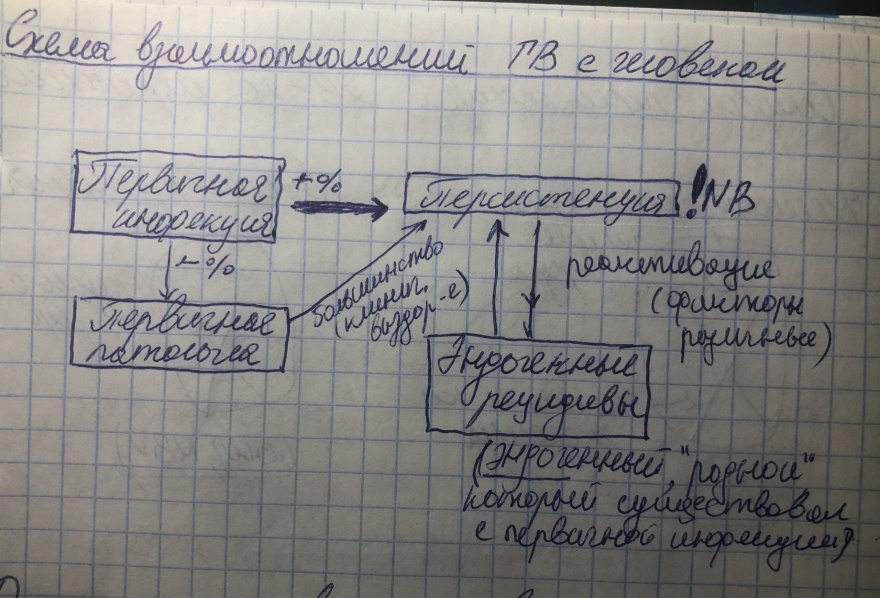 Схема взаимоотношений ГВ с человеком
Первичная
инфекция
+%
Персистенция
! NB
-%
Первичная
патология
большинство
(клинич.
выздор-е)
реактивация
(факторы
различные)
Эндогенные
рецидивы
(Эндогенный, "родной"
который существовал
с первичной инфекции)